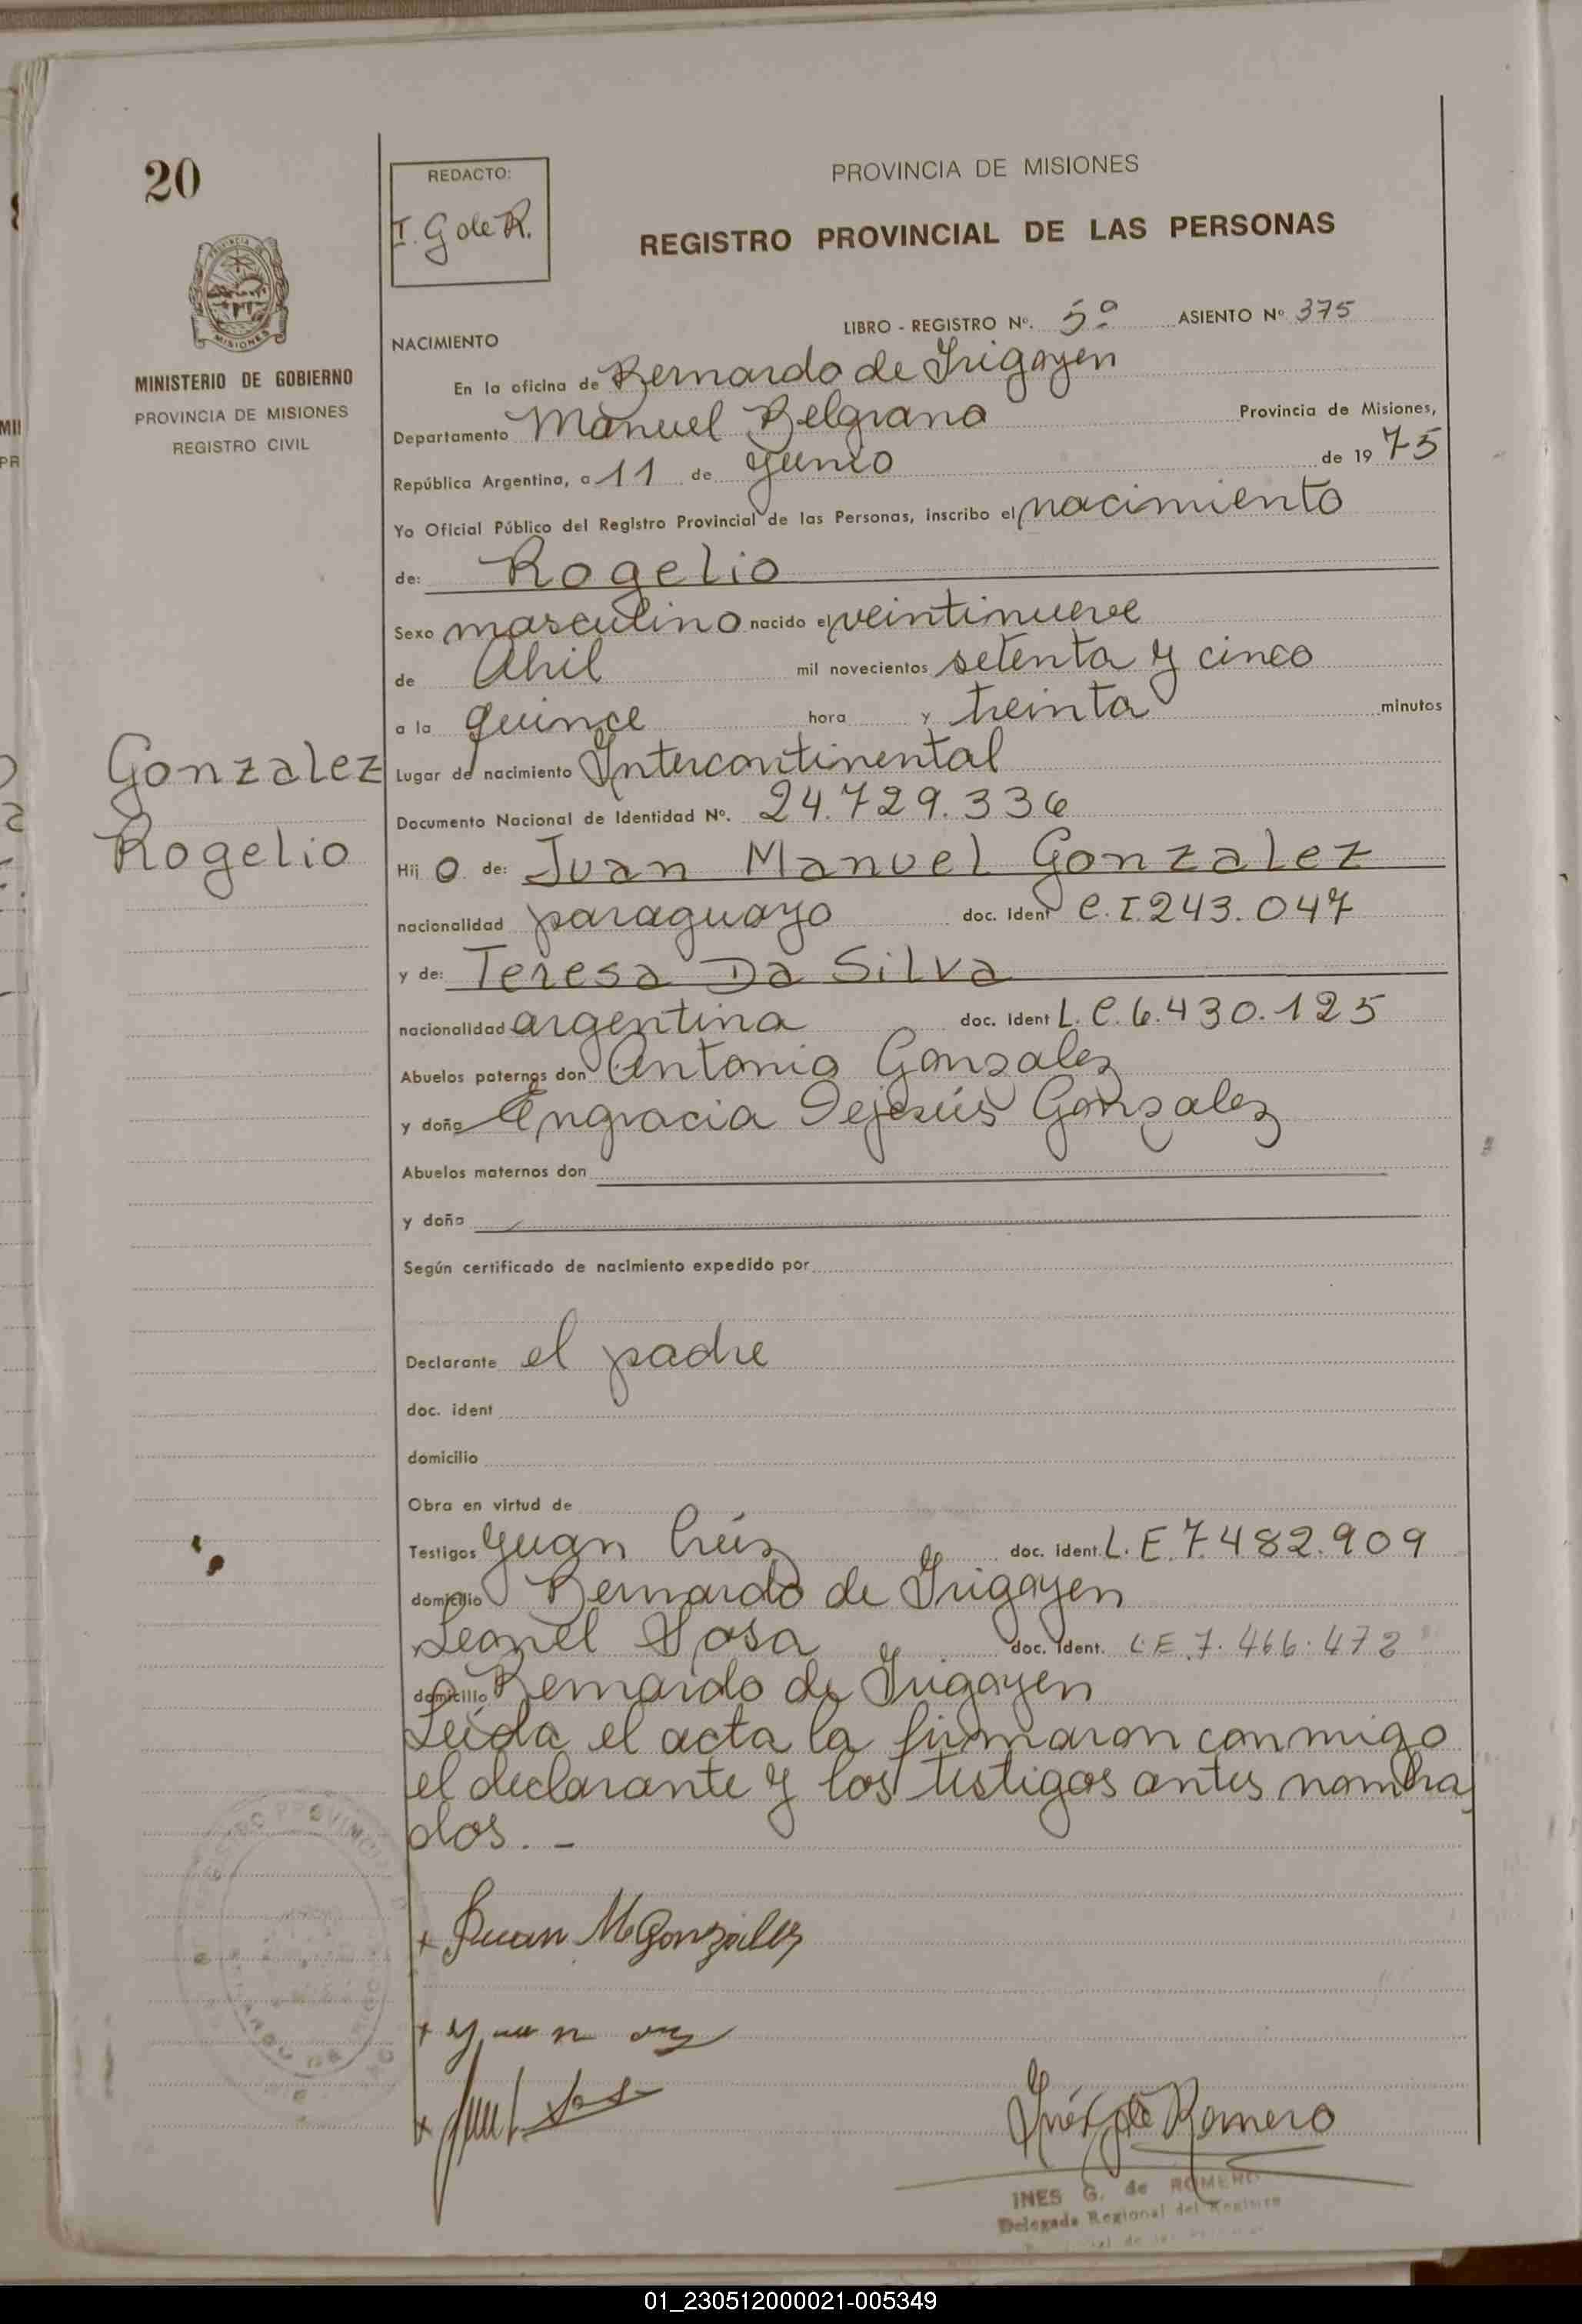 20
REDACTO:
I. G de R.
PROVINCIA DE MISIONES
REGISTRO PROVINCIAL DE LAS PERSONAS
MINISTERIO DE GOBIERNO
PROVINCIA DE MISIONES
REGISTRO CIVIL
LIBRO - REGISTRO Nº. 5º ASIENTO Nº 375
NACIMIENTO
En la oficina de Bernardo de Irigoyen
Departamento Manuel Belgrano Provincia de Misiones,
República Argentina, a 11 de Junio de 19 75
Yo Oficial Público del Registro Provincial de las Personas, inscribo el nacimiento
de: Rogelio
Sexo masculino nacido el veintinueve
de Abril mil novecientos setenta y cinco
a la quince hora y treinta minutos
Gonzalez
Rogelio
Lugar de nacimiento Intercontinental
Documento Nacional de Identidad Nº. 24.729.336
Hij o de: Juan Manuel Gonzalez
nacionalidad paraguayo doc. Ident C.I.243.047
y de: Teresa Da Silva
nacionalidad argentina doc. Ident L.C.6.430.125
Abuelos paternos don Antonio Gonzalez
y doña Engracia Dejesús Gonzalez
Abuelos maternos don
y doña
Según certificado de nacimiento expedido por
Declarante el padre
doc. ident
domicilio
Obra en virtud de
Testigos Juan Crúz doc. ident. L.E.7.482.909
domicilio Bernardo de Irigoyen
Leonel Sosa doc. Ident. L.E.7.466.472
domicilio Bernardo de Irigoyen
Leída el acta la firmaron conmigo
el declarante y los testigos antes nombra
dos. -
+ Juan M Gonzalez
+ Juan
+
Inés G de Romero
INES G. de ROMERO
Delegada Regional del Registro
01_230512000021-005349